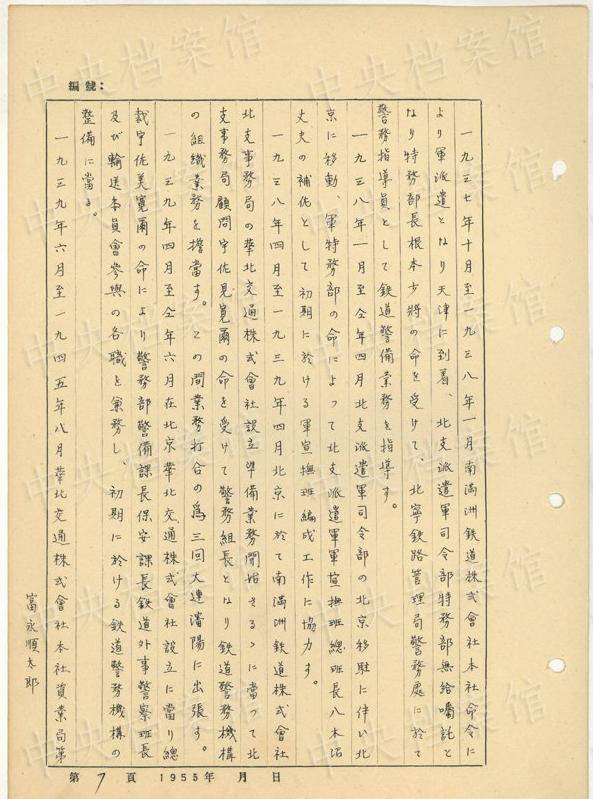 編號：
一九三七年十月至一九三八年一月南滿洲鉄道株式會社本社命令に
より軍派遣となり天津に到着、北支派遣軍司令部特務部無給囑託と
なり特務部長根本少將の命を受けて、北寧鉄路管理局警務處に於て
警務指導員として鉄道警備業務を指導す。
一九三八年一月至仝年四月北支派遣軍司令部の北京移駐に伴い北
京に移動、軍特務部の命によって北支派遣軍軍宣撫班總班長八木沼
丈夫の補佐として初期に於ける軍宣撫班編成工作に協力す。
一九三八年四月至一九三九年四月北京に於て南滿洲鉄道株式會社
北支事務局の華北交通株式會社設立準備業務開始さるゝに當って北
支事務局顧問宇佐見寛爾の命を受けて警務組長となり鉄道警務機構
の組織業務を擔當す。この間業務打合の爲三回大連瀋陽に出張す。
一九三九年四月至仝年六月在北京華北交通株式會社設立に當り総
裁宇佐美寛爾の命により警務部警備課長保安課長鉄道外事警察班長
及び輸送委員會參與の各職を兼務し、初期に於ける鉄道警務機構の
整備に當る。
一九三九年六月至一九四五年八月華北交通株式會社本社資業局第
富永順太郎
第 7 頁 1955年 月 日
中央档案馆